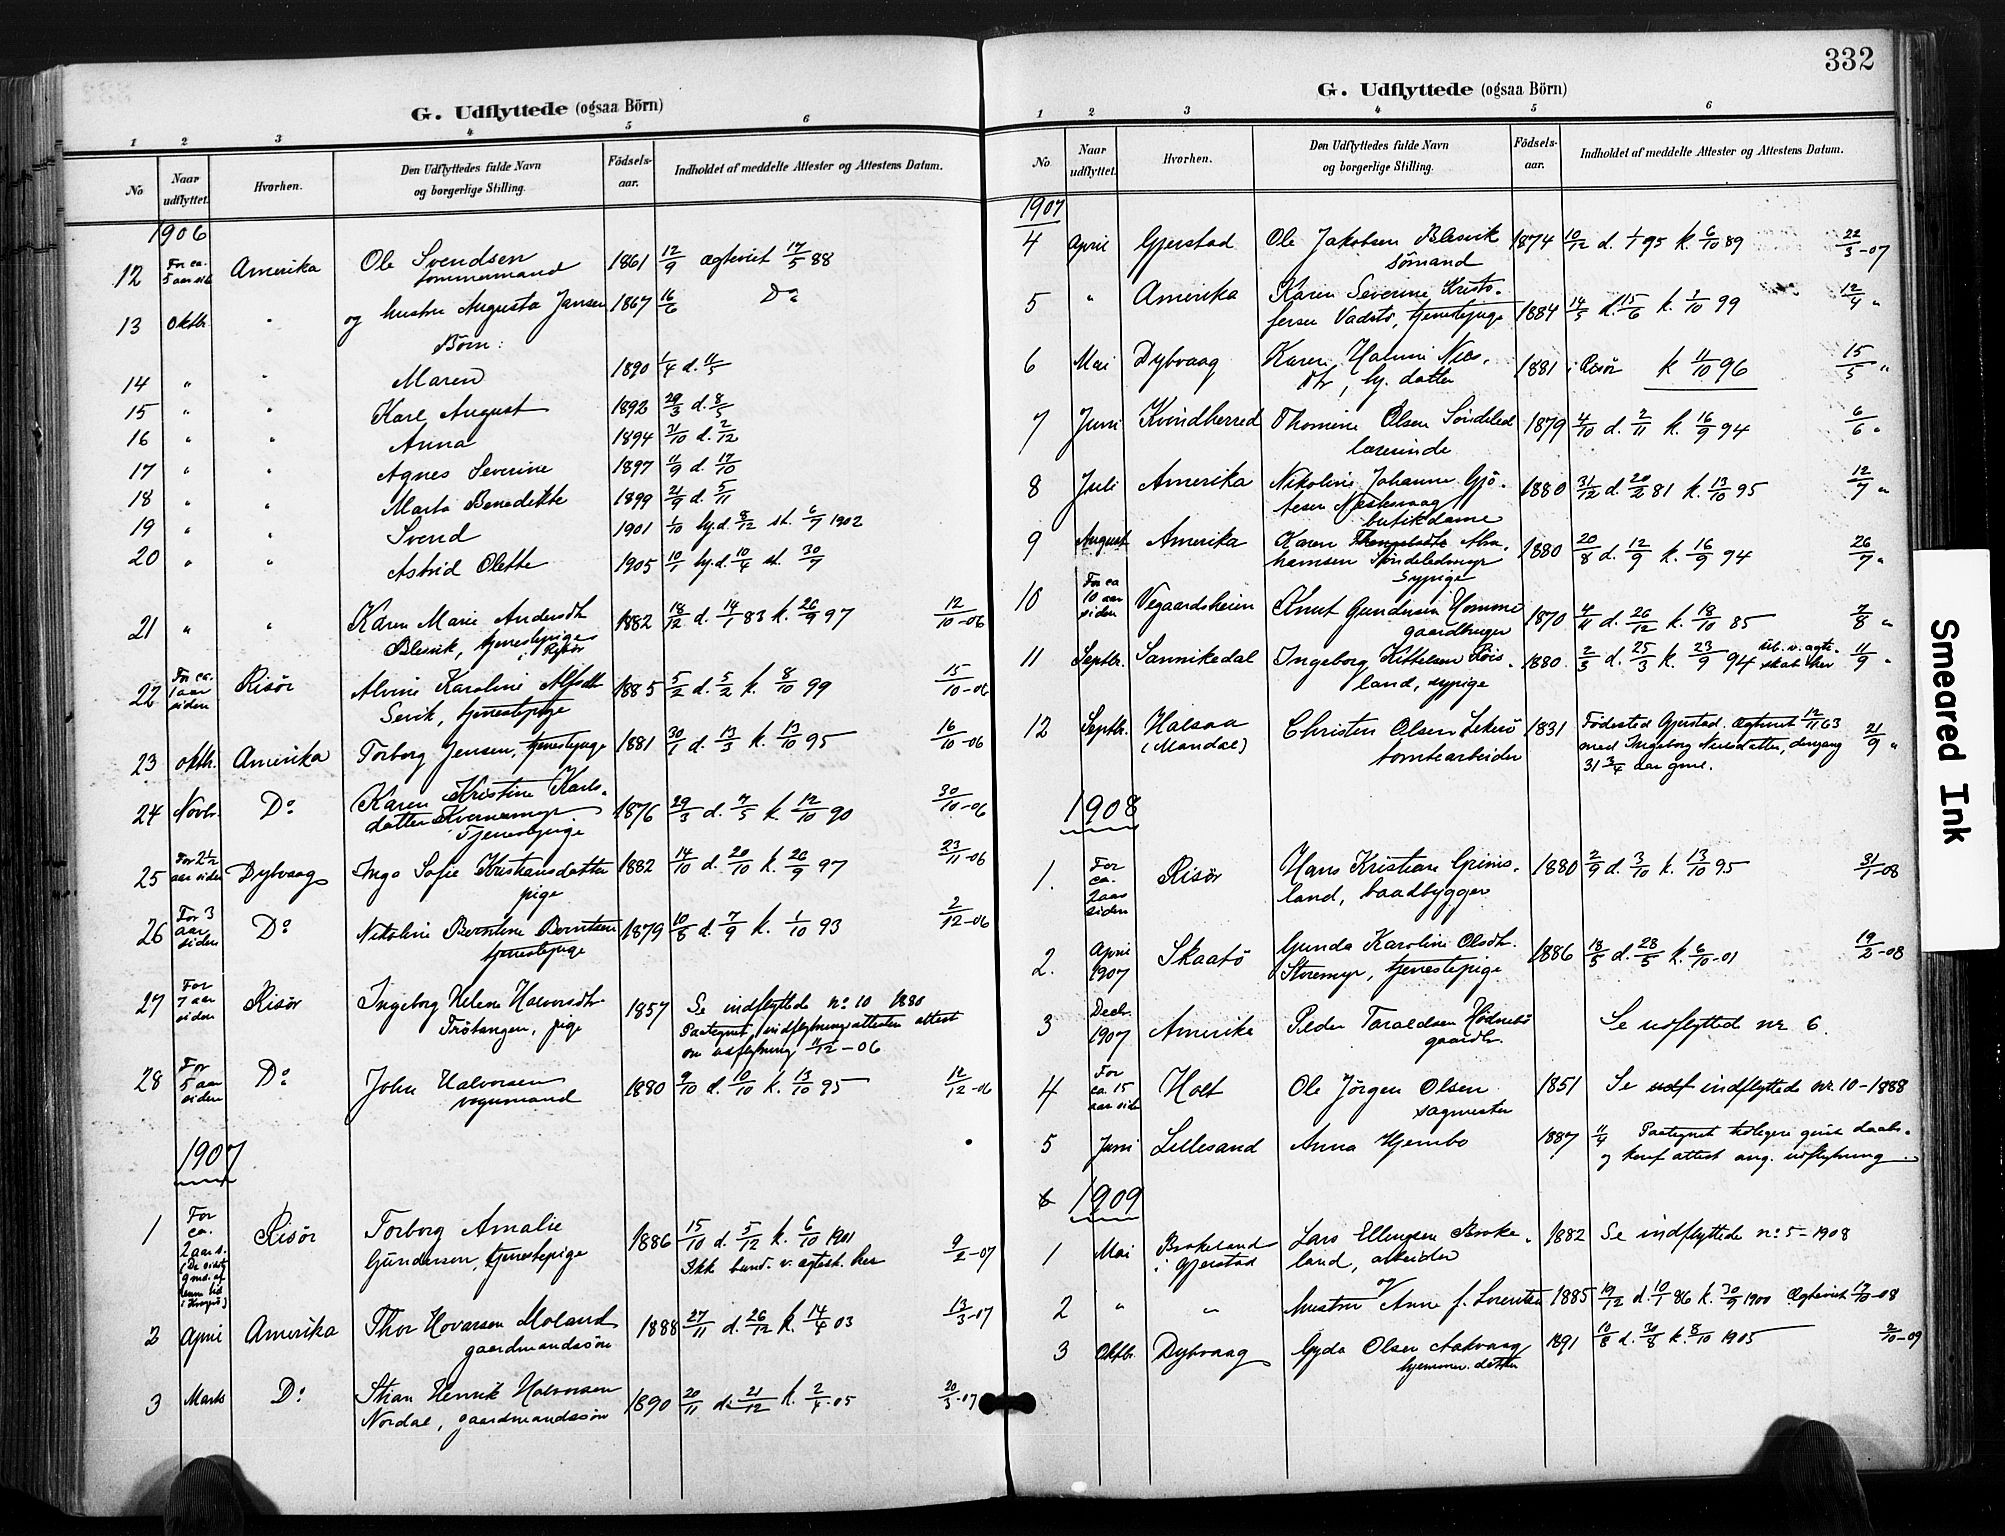 G. Udflyttede (ogsaa Börn)
1 2 3 4 5 6
No
Naar udflyttet.
Hvorhen.
Den Udflyttedes fulde Navn og borgerlige Stilling.
Födsels-aar.
Indholdet af meddelte Attester og Attestens Datum.
1906
12 For ca. 5 aar sid. Amerika Ole Svendsen 1861 12/9 ægteviet 17/5 88
tømmermand
13 Oktbr. " og hustru Augusta Jansen 1867 16/6 Do
Börn:
14 " " Maren 1890 1/4 d. 11/5
15 " " Karl August 1892 29/3 d. 8/5
16 " " Anna 1894 31/10 d. 2/12
17 " " Agnes Severine 1897 11/9 d. 17/10
18 " " Marta Benedikte 1899 21/9 d. 5/11
19 " " Svend 1901 1/10 hj.d. 8/12 st. 6/7 1902
20 " " Astrid Olette 1905 10/1 hj.d. 10/4 st. 30/7
21 " " Karen Marie Andersdtr 1882 18/12 d. 14/1 83 k. 26/9 97 12/10-06
Blesvik, tjenestepige
i Risør
22 For ca. 1 aar siden Risør Alvine Karoline Alfsdtr 1885 5/2 d. 5/2 k. 8/10 99 15/10-06
Sevik, tjenestepige
23 Oktbr. Amerika Torborg Jensen, tjenestepige 1881 30/1 d. 13/3 k. 13/10 95 16/10-06
24 Novbr. Do Karen Kristine Karls- 1876 29/3 d. 7/5 k. 12/10 90 30/10-06
datter Kvernmyr
Tjenestepige
25 For 2 1/2 aar siden Dybvaag Inga Sofie Kristiansdatter 1882 14/10 d. 20/10 k. 26/9 97 23/11-06
pige
26 For 3 aar siden Do Nikoline Berntine Berntsen 1879 10/8 d. 7/9 k. 1/10 93 2/12-06
tjenestepige
27 For 7 aar siden Risør Ingeborg Helene Halvorsdtr 1857 Se indflyttede no 10 1880
Tröbangen, pige Paategnet indflytningsattesten attest
om udflytning 11/12-06
28 For 5 aar siden Do John Halvorsen 1880 9/10 d. 10/10 k. 13/10 95 12/12-06
vognmand
1907
1 For ca. 2 aar s. Risör Torborg Amalie 1886 15/10 d. 5/12 k. 6/10 1901
Gundersen, tjenestepige Ikk bund. v. egtesk. her 9/2-07
2 April Amerika Thor Hovarsen Moland 1888 27/11 d. 26/12 k. 14/4 03 13/3-07
gaardmandssön
3 Marts Do Stian Henrik Halvorsen 1890 20/11 d. 21/12 k. 2/4-05 20/3-07
Nordal, gaardmandssön
332
G. Udflyttede (ogsaa Börn)
1 2 3 4 5 6
No
Naar udflyttet.
Hvorhen.
Den Udflyttedes fulde Navn og borgerlige Stilling.
Födsels-aar.
Indholdet af meddelte Attester og Attestens Datum.
1907
4 April Gjerstad Ole Jakobsen Blesvik 1874 10/12 d. 1/1 95 k. 6/10 89 22/3-07
sömand
5 " Amerika Karen Severine Kristo-
fersen Vadstö, tjenestepige 1884 14/5 d. 15/6 k. 1/10 99 12/4 "
6 Mai Dybvaag Karen Halvine Nils- 1881 i Risör k 11/10 96 15/5 "
dtr, hj. datter
7 Juni Kvindherred Thomine Olsen Söndeled 1879 4/10 d. 2/11 k. 16/9 94 6/6 "
lærerinde
8 Juli Amerika Nikoline Johanne Gjö- 1880 31/12 d. 20/2 81 k. 13/10 95 12/7 "
butikdame
9 August Amerika Karen Abra-
hamsen Söndeledmyr 1880 20/8 d. 12/9 k. 16/9 94 26/7 "
Sypige
10 For ca 10 aar siden Vegaardsheien Knut Gundersen Homme 1870 4/11 d. 26/12 k. 18/10 85 7/8 "
gaardbruger
11 Septbr. Sannikedal Ingeborg Kittelsen Röis- 1880 2/3 d. 25/3 k. 23/9 94 ub. v. egte-skab her 11/9 "
land, sypige
12 Septbr. Halsaa (Mandal) Christen Olsen Leksö 1831 Födested Gjerstad. Egteviet 12/11 63
tomtearbeider med Ingeborg Nilsdatter, dengang 21/9 "
31 3/4 aar gml.
1908
1. For ca. 2 aar siden Risör Hans Kristian Grims- 1880 2/9 d. 3/10 k. 13/10 95 31/1-08
land, baadbygger
2. April 1907 Skaatö Gunda Karoline Olsdtr. 1886 18/5 d. 28/5 k. 6/10-01 19/2-08
Storemyr, tjenestepige
3 Decbr. 1907 Amerika Peder Taraldsen Hödnebö Se udflyttede nr 6.
gaardbr.
4 For ca. 15 aar siden Holt Ole Jörgen Olsen 1851 Se udf indflyttede nr. 10-1888
sagmester
5 Juni Lillesand Anna Hjembo 1887 11/4 Paategnet tidligere givet daabs-
og konf attest ang. udflytning
6 1909
1 Mai Brokeland i Gjerstad Lars Ellingsen Broke- 1882 Se indflyttede no 5-1908
land, arbeider
2 " " og hustru Anne f. Lorentsen 1885 19/12 d. 10/1 86 k. 30/9 1900 Egteviet 13/10-08
3 Oktbr. Dybvaag Gyda Olsen Aakvaag 1891 10/8 d. 30/8 k. 8/10 1905 2/10-09
hjemmev. datter
Smeared Ink